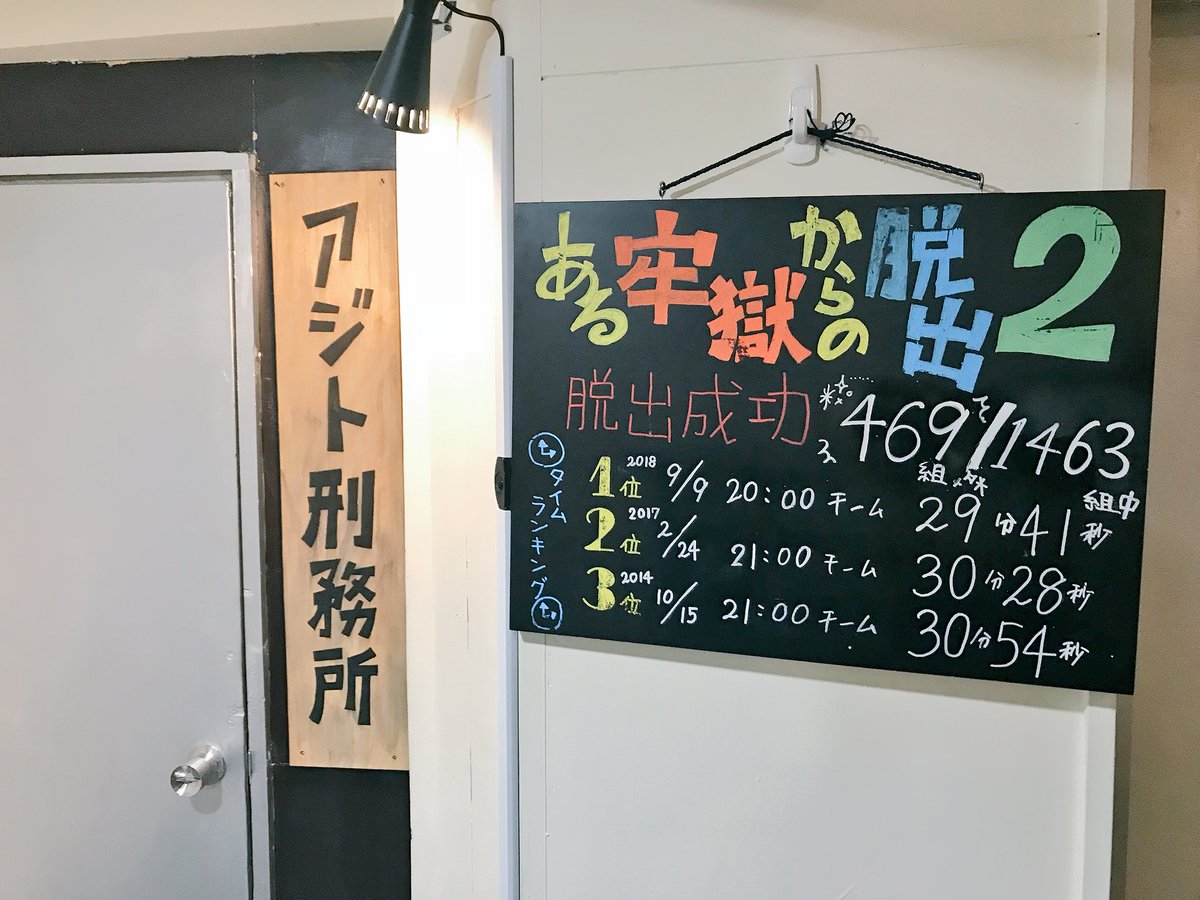 アジト刑務所
ある牢獄からの脱出2
脱出成功 469/1463
組 組中
タイムランキング
1位 2018 9/9 20:00 チーム 29分41秒
2位 2017 2/24 21:00 チーム 30分28秒
3位 2014 10/15 21:00 チーム 30分54秒